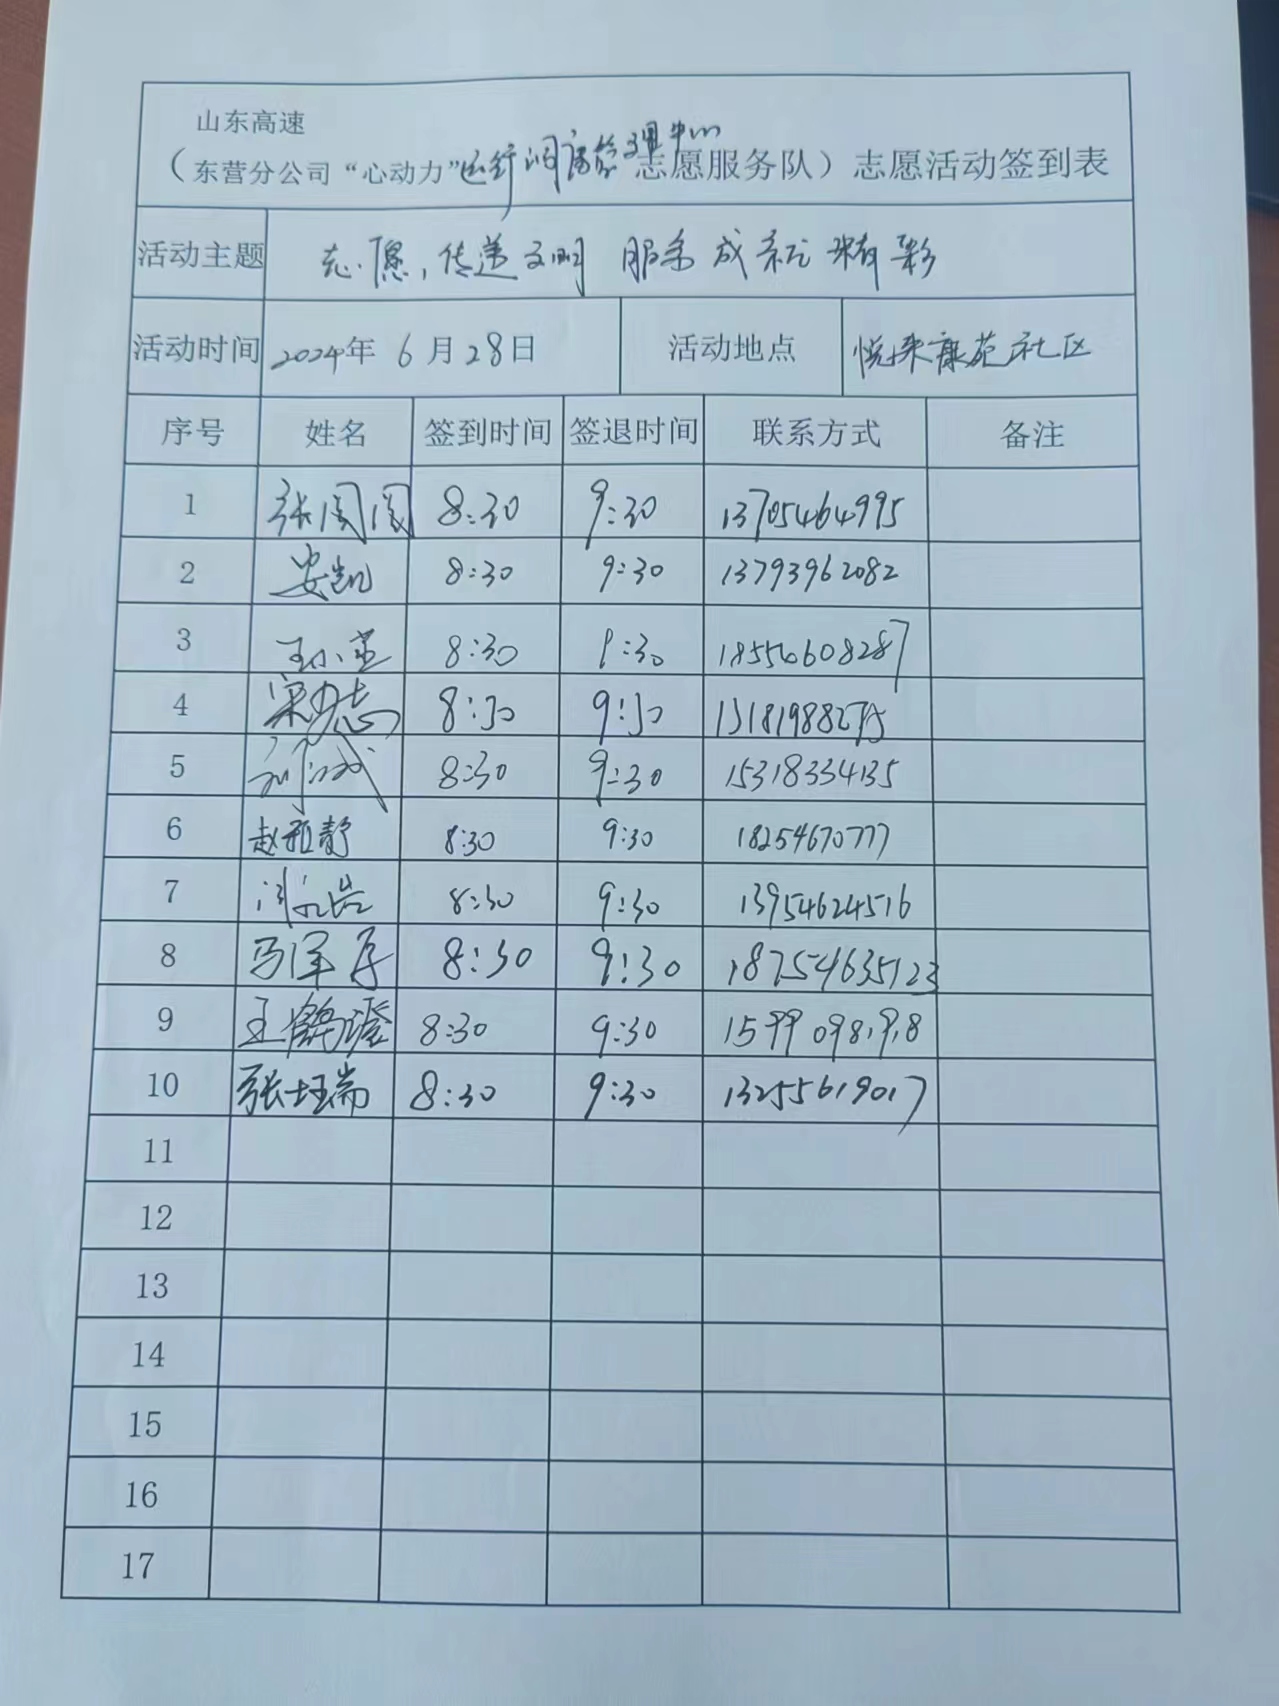 山东高速
（东营分公司“心动力”运行调度管理中心志愿服务队）志愿活动签到表
活动主题 志愿，传递文明 服务成就精彩
活动时间 2024年 6月28日 活动地点 悦来康苑社区
序号 姓名 签到时间 签退时间 联系方式 备注
1 张闵闵 8:30 9:30 13705464995
2 安凯 8:30 9:30 13793962082
3 8:30 9:30 18554608287
4 8:30 9:30 13181988275
5 8:30 9:30 15318334135
6 赵雅静 8:30 9:30 18254670777
7 8:30 9:30 13954624516
8 8:30 9:30 18754635123
9 8:30 9:30 15990981918
10 张珏瑞 8:30 9:30 13255619017
11
12
13
14
15
16
17